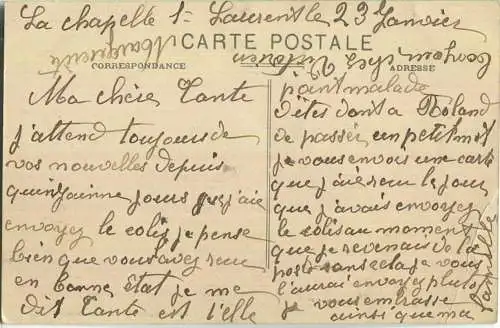 La chapelle St Laurent le 23 Janvier
CARTE POSTALE
CORRESPONDANCE
ADRESSE
Marguerite
Ma chère Tante
j'attend toujours de
vos nouvelles depuis
quinzainne jours que j'aie
envoyez le colis je pense
bien que vous avez reçu
en bonne état je me
dit Tante est t'elle
point malade
dites dont a Roland
de passée un petit mot
je vous envois une carte
que j'aie reçu le jour
que j'avais envoyez
le colis au moment
que je revenais de la
poste sans cela je vous
l'aurai envoyez plus
je vous embrasse
ainsi que ma
famille